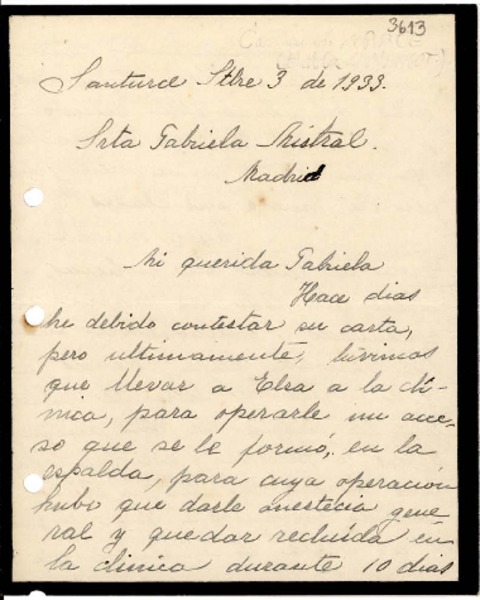 3613
Santurce Stbre 3 de 1933.
Srta Gabriela Mistral.
Madrid
Mi querida Gabriela
Hace dias
he debido contestar su carta,
pero ultimamente, tuvimos
que llevar a Elsa a la clí-
nica, para operarle un acce-
so que se le formó, en la
espalda, para cuya operación
hubo que darle anestecia gene
ral y quedar recluída en
la clinica durante 10 dias